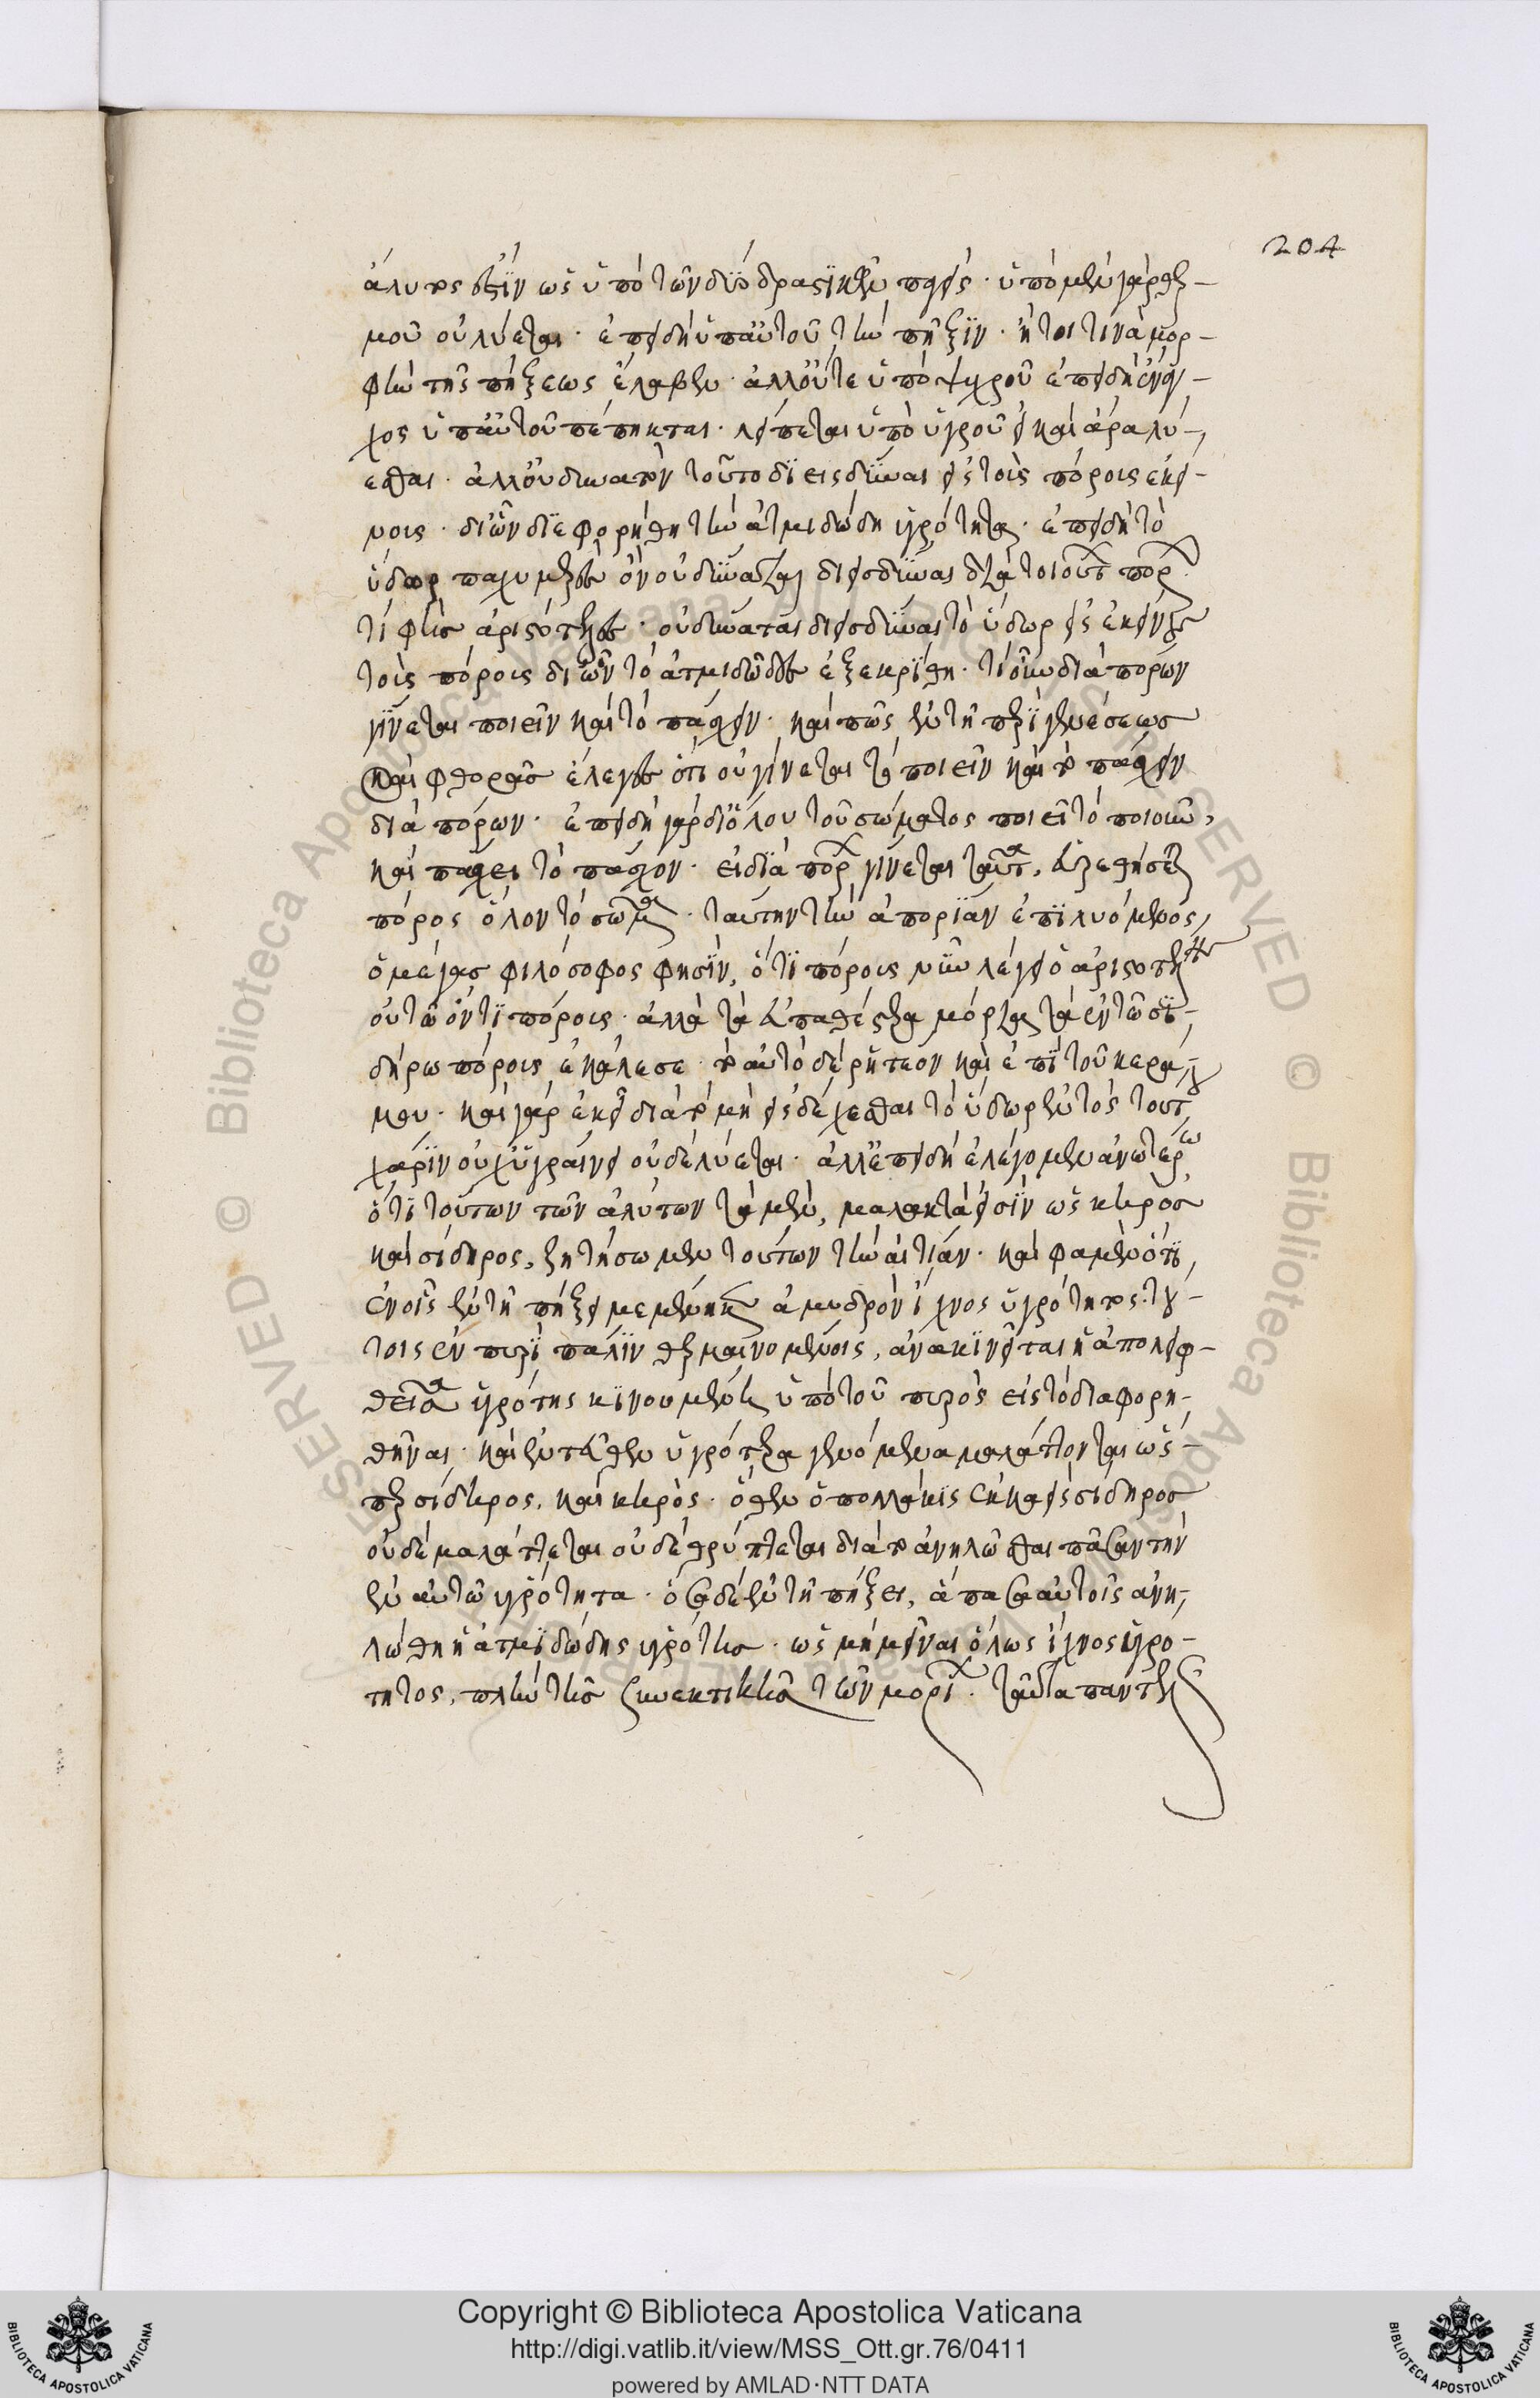 204
ἄλυτός ἐστιν ὡς ὑπὸ τῶν δύο δραστικῶν παγείς · ὑπὸ μὲν γὰρ θερ-
μοῦ οὐ λύεται · ἐπειδὴ ὑπ' αὐτοῦ τὴν πῆξιν · ἤτοι τινὰ μορ-
φὴν τῆς πήξεως ἔλαβεν · ἀλλ' οὔτε ὑπὸ ψυχροῦ ἐπειδὴ
ὑπ' αὐτοῦ πέπηκται · λείπεται ὑπὸ ὑγροῦ εἰ καὶ ἄρα λύ-
εσθαι · ἀλλ' οὐ δυνατὸν τοῦτο διεισδῦναι εἰς τοὺς πόρους ἐκεί-
νους · δι' ὧν διεφορήθη τὴν ἀτμιδώδη ὑγρότητα · ἐπειδὴ τὸ
ὕδωρ παχυμερὲς ὂν οὐ δύναται διεισδῦναι διὰ τοιούτων πόρων
τί φὴς ἀριστότελες · οὐ δύναται διεισδῦναι τὸ ὕδωρ εἰς ἐκείνους
τοὺς πόρους δι' ὧν τὸ ἀτμιδῶδες ἐξεκρίθη · τί οὖν διὰ πόρων
γίνεται ποιεῖν καὶ τὸ πάσχειν · καὶ πῶς ἐν τῇ περὶ γενέσεως
καὶ φθορᾶς ἔλεγες ὅτι οὐ γίνεται τὸ ποιεῖν καὶ τὸ πάσχειν
διὰ πόρων · ἐπειδὴ γὰρ δι' ὅλου τοῦ σώματος ποιεῖ τὸ ποιοῦν,
καὶ πάσχει τὸ πάσχον · εἰ διὰ πόρων γίνεται ταῦτα, εὑρεθήσεται
πόρος ὅλον τὸ σῶμα · ταύτην τὴν ἀπορίαν ἐπιλυόμενος,
ὁ μέγας φιλόσοφος φησίν, ὅτι πόρους νῦν λέγει ὁ ἀριστοτέλης
οὐ τῷ ὄντι πόρους · ἀλλὰ τὰ εὐπαθέστερα μόρια τὰ ἐν τῷ σι-
δήρω πόρους ἐκάλεσε · τὸ αὐτὸ δὲ ῥητέον καὶ ἐπὶ τοῦ κερά-
μου · καὶ γὰρ ἐκεῖ διὰ τὸ μὴ εἰσδέχεσθαι τὸ ὕδωρ ἐντὸς τούτου
χάριν οὐχ ὑγραίνει οὐδὲ λύεται · ἀλλ' ἐπειδὴ ἐλέγομεν ἀνωτέρω
ὅτι τούτων τῶν ἀλύτων τὰ μὲν, μαλακτά εἰσιν ὡς κηρὸς
καὶ σίδηρος, ζητήσωμεν τούτων τὴν αἰτίαν · καὶ φαμὲν ὅτι,
ἐν οἷς ἐν τῇ πήξει μεμένηκεν ἀμυδρὸν ἴχνος ὑγρότητος · τού-
τοις ἐν πυρὶ πάλιν θερμαινομένοις, ἀνακινεῖται ἡ ἀπολειφ-
θεῖσα ὑγρότης κινουμένη ὑπὸ τοῦ πυρὸς εἰς τὸ διαφορη-
θῆναι · καὶ ἐντεῦθεν ὑγρότερα γενόμενα μαλάττονται ὥσ-
περ σίδηρος, καὶ κηρός · ὅθεν ὁ πολλάκις ἐκκαεὶς σίδηρος
οὐδὲ μαλάττεται οὐδὲ θρύπτεται διὰ τὸ ἀνηλῶσθαι πᾶσαν τὴν
ἐν αὐτῶ ὑγρότητα · ὅσα δὲ ἐν τῇ πήξει, ἅπασα αὐτοῖς ἀνη-
λώθη ἡ ἀτμιδώδης ὑγρότης · ὡς μὴ μεῖναι ὅλως ἴχνος ὑγρό-
τητος, πλὴν τῆς συνεκτικῆς τῶν μορίων · ταῦτα παντελῶς
Copyright © Biblioteca Apostolica Vaticana
http://digi.vatlib.it/view/MSS_Ott.gr.76/0411
powered by AMLAD·NTT DATA